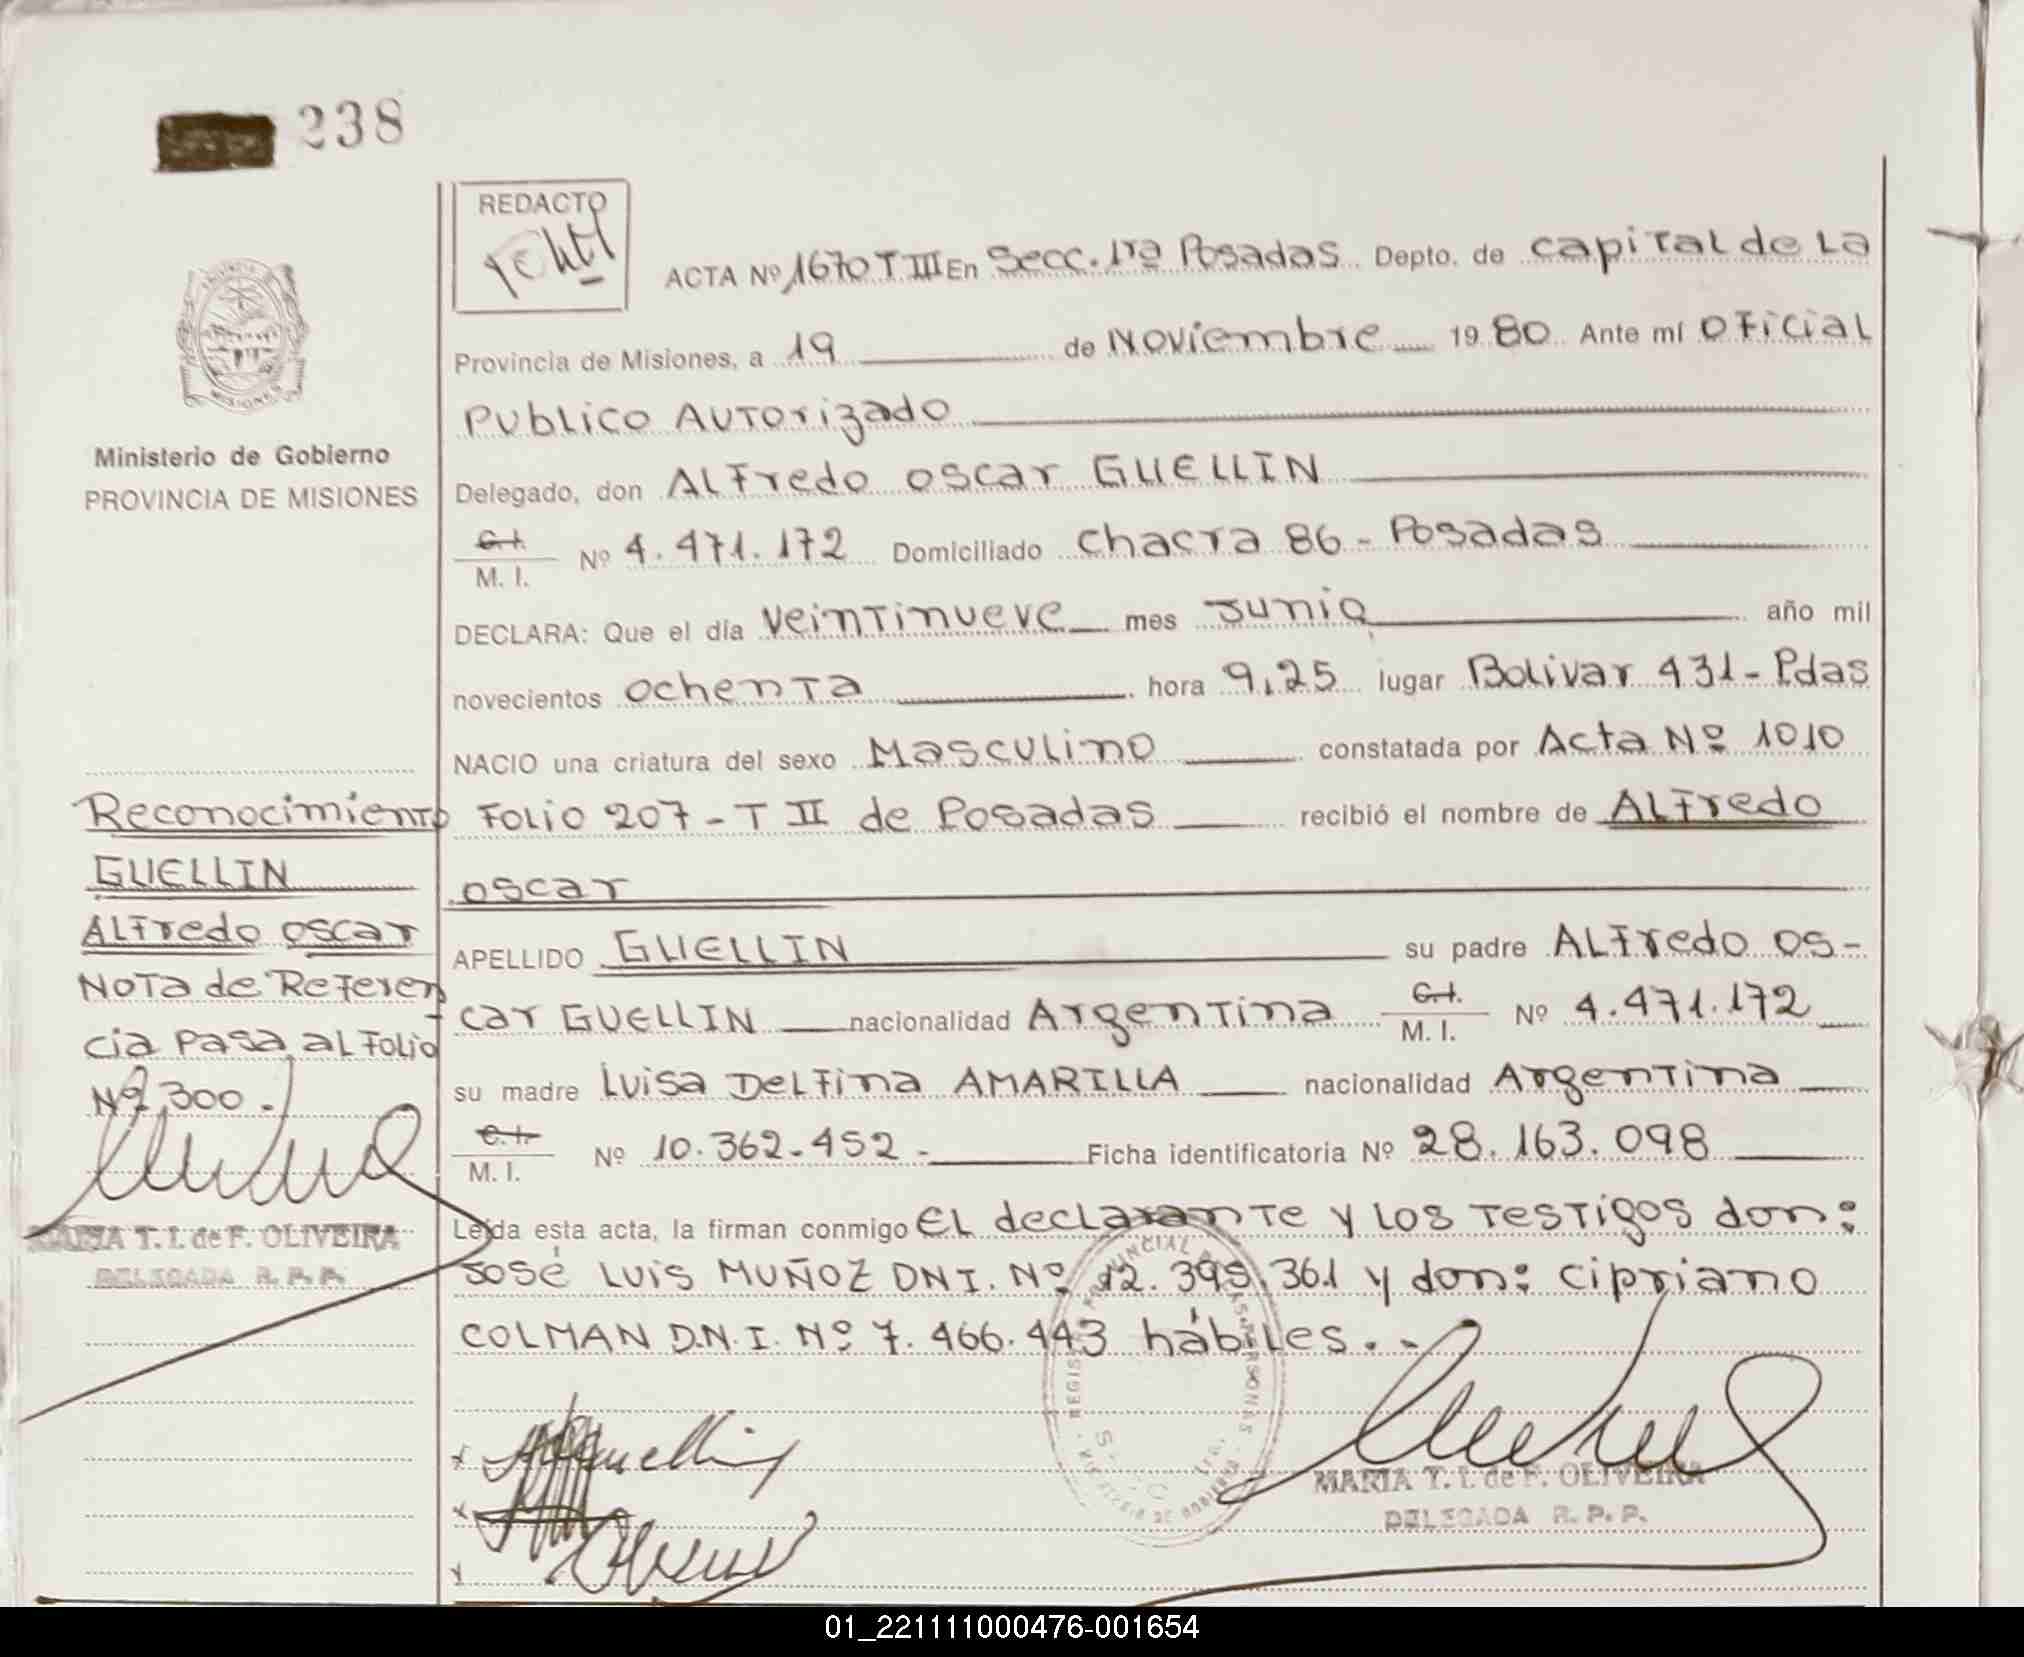 238
REDACTO
ACTA Nº 1670 T III En Secc. 1rª Posadas Depto. de capital de La
Provincia de Misiones, a 19 de Noviembre 1980 Ante mí Oficial
Publico Autorizado
Ministerio de Gobierno
PROVINCIA DE MISIONES
Delegado, don Alfredo Oscar GUELLIN
C.I.
M. I. Nº 4.471.172 Domiciliado Chacra 86 - Posadas
DECLARA: Que el día Veintinueve mes Junio año mil
novecientos ochenta hora 9,25 lugar Bolivar 431 - Pdas
NACIO una criatura del sexo Masculino constatada por Acta Nº 1010
Folio 207 - T II de Posadas recibió el nombre de Alfredo
Oscar
APELLIDO GUELLIN su padre Alfredo Os-
car GUELLIN nacionalidad Argentina C.I.
M. I. Nº 4.471.172
su madre Luisa Delfina AMARILLA nacionalidad Argentina
C.I.
M. I. Nº 10.362.452 - Ficha identificatoria Nº 28.163.098
Leída esta acta, la firman conmigo El declarante y los testigos don:
José Luis MUÑOZ DNI. Nº 12.395.361 y don: Cipriano
COLMAN D.N.I. Nº 7.466.443 hábiles. -
Reconocimiento
GUELLIN
Alfredo Oscar
Nota de Referen
cia Pasa al folio
Nº 300.
MARIA T. I. de F. OLIVEIRA
DELEGADA R. P. P.
MARIA T. I. de F. OLIVEIRA
DELEGADA R. P. P.
MISIONES
01_221111000476-001654